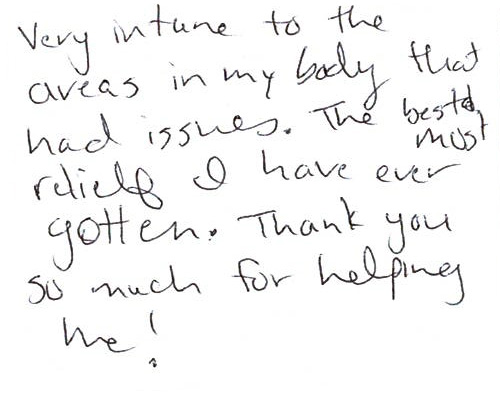 Very intune to the
areas in my body that
had issues. The best &
most
relief I have ever
gotten. Thank you
so much for helping
me!